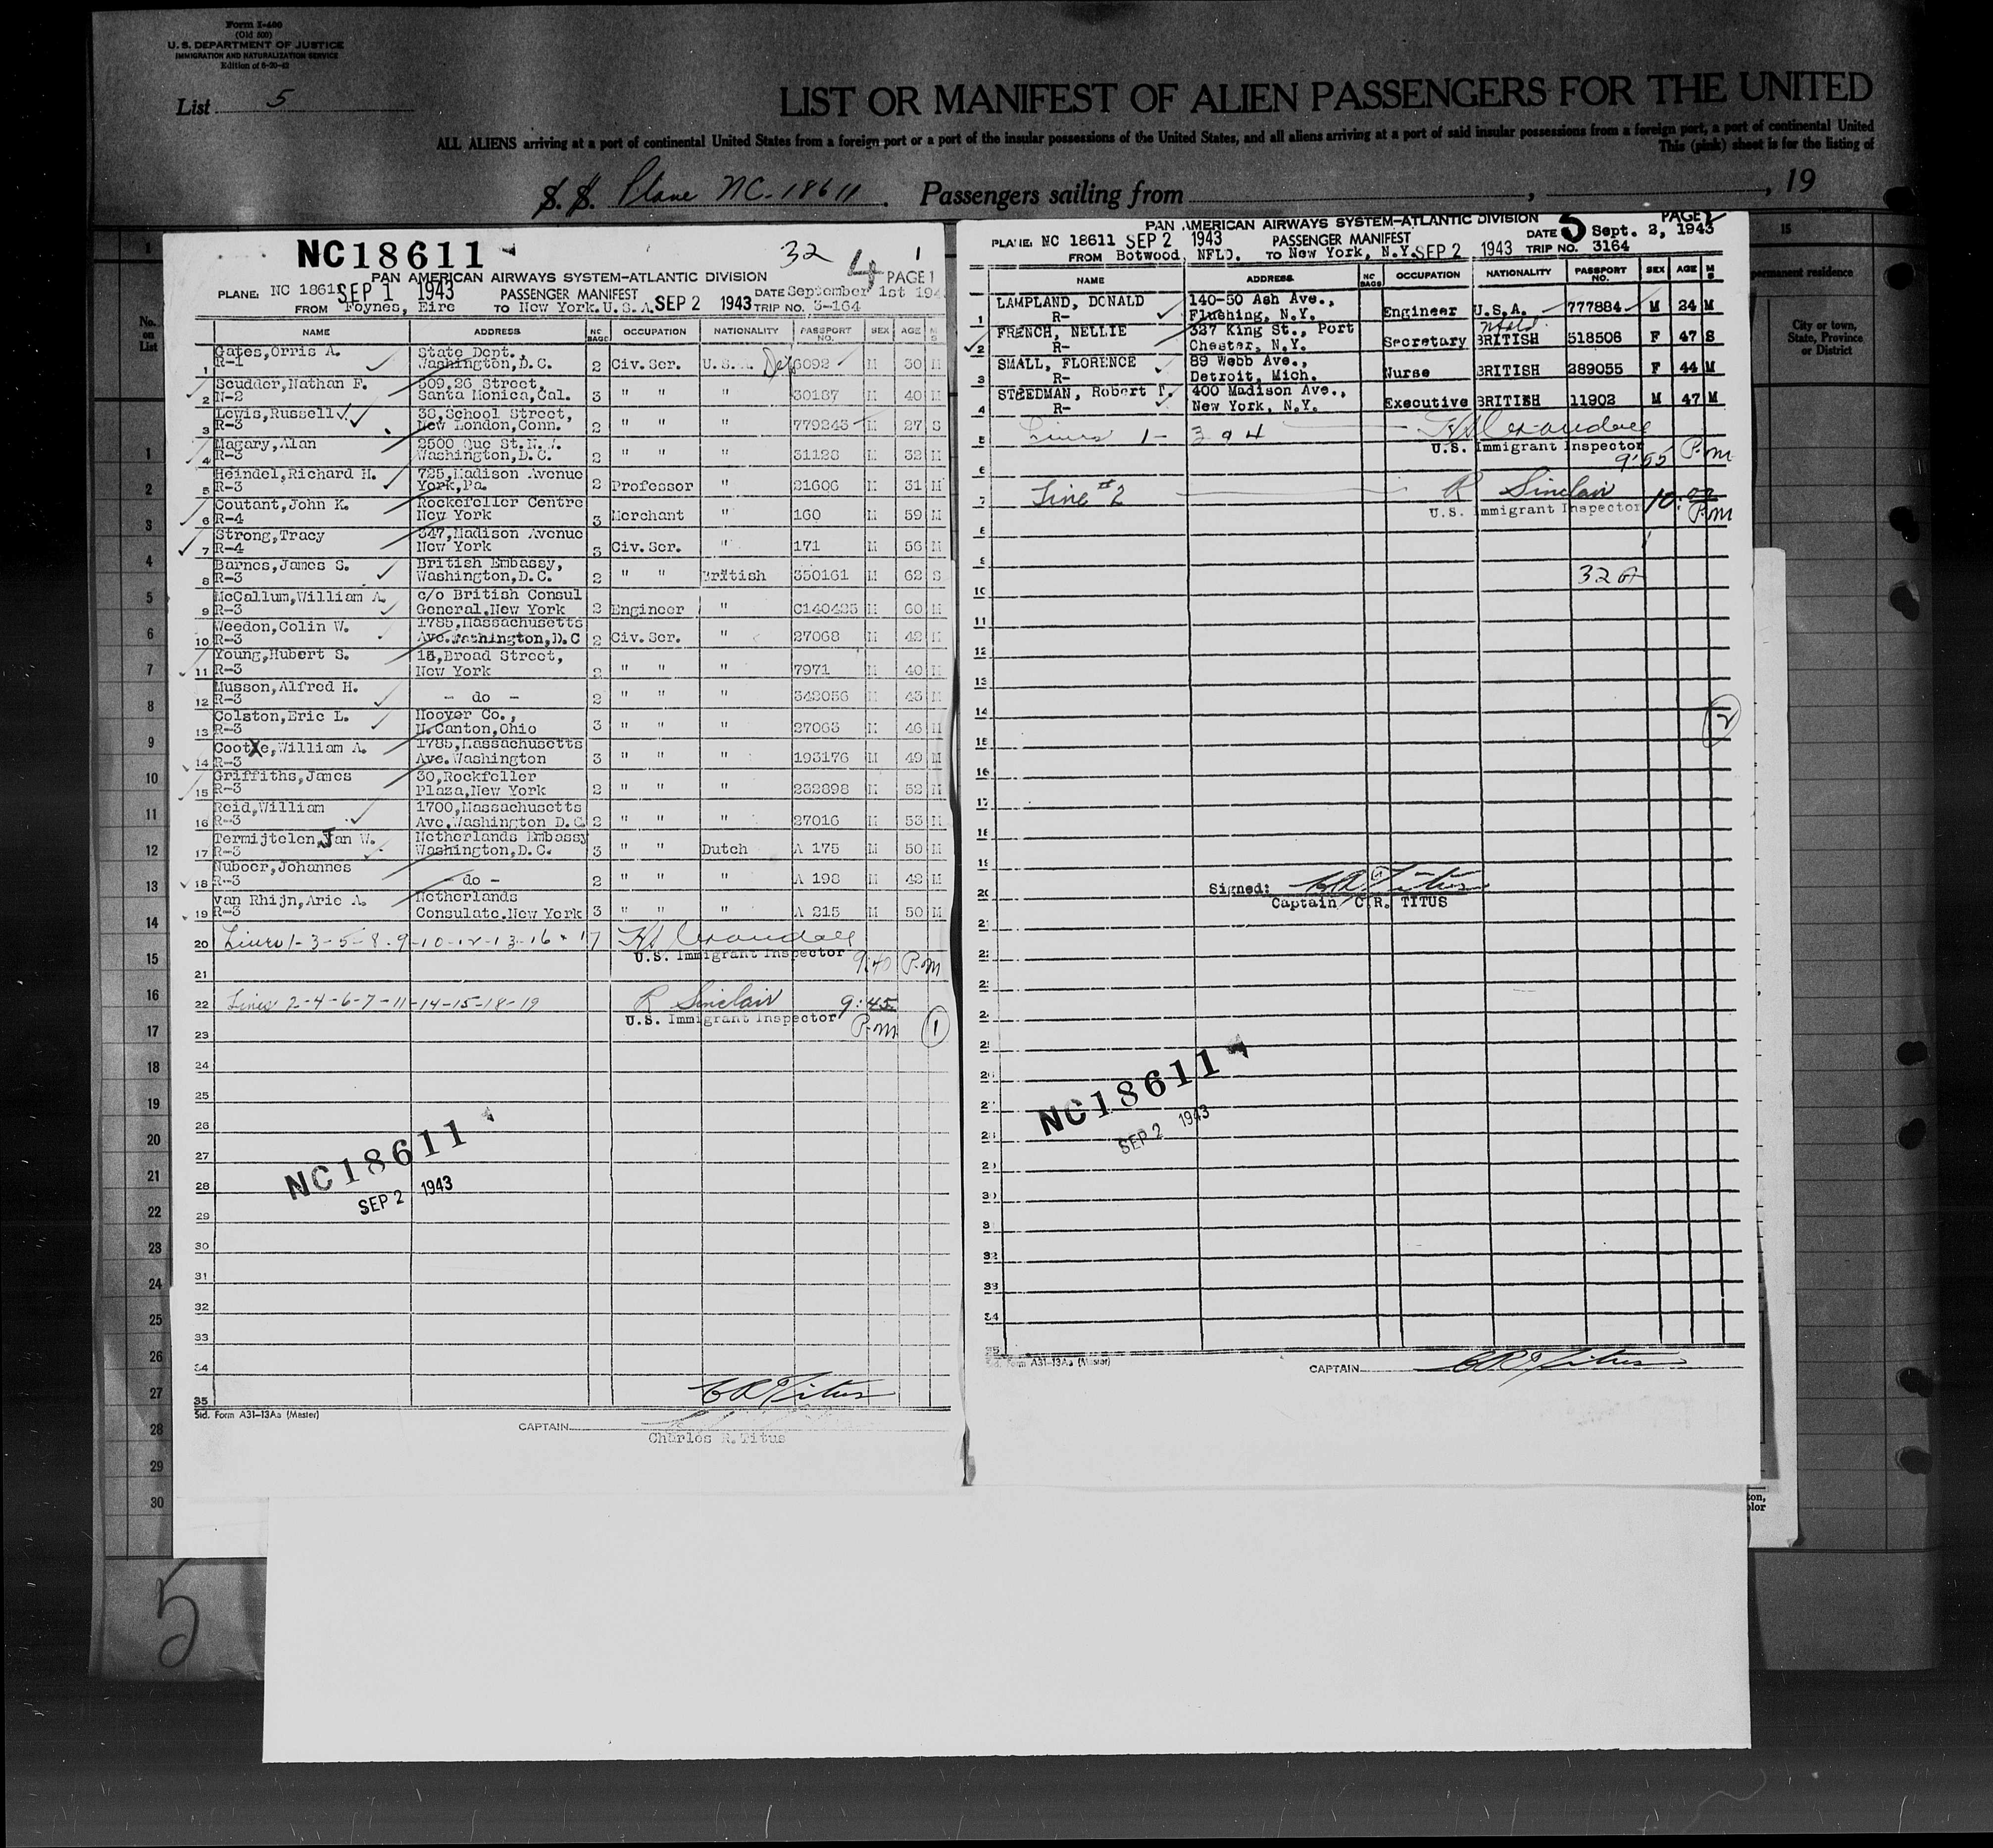 Form I-466
(Old 500)
U. S. DEPARTMENT OF JUSTICE
IMMIGRATION AND NATURALIZATION SERVICE
List 5
LIST OR MANIFEST OF ALIEN PASSENGERS FOR THE UNITED
ALL ALIENS arriving at a port of continental United States from a foreign port or a port of the insular possessions of the United States, and all aliens arriving at a port of said insular possessions from a foreign port, a port of continental United
This (pink) sheet is for the listing of
S. S. Plane NC-18611. Passengers sailing from , , 19
NC18611
32 4 1
PAGE 1
PAN AMERICAN AIRWAYS SYSTEM–ATLANTIC DIVISION
PLANE: NC 1861 SEP 1 1943 PASSENGER MANIFEST DATE September 1st 194
FROM Foynes, Eire TO New York.U.S.A. SEP 2 1943 TRIP NO. 3-164
NAME ADDRESS NC BAGS OCCUPATION NATIONALITY PASSPORT NO. SEX AGE M S
1 Gates,Orris A. R-1 State Dept., Washington,D.C. 2 Civ.Ser. 6092 M 30 M
2 Scudder,Nathan F. N-2 509,26 Street, Santa Monica,Cal. 3 " " " 30187 M 40 M
3 Lewis,Russell R-3 38,School Street, New London,Conn. 2 " " " 779245 M 27 S
4 Magary,Alan R-3 2500 Que St.N.W. Washington,D.C. 2 " " " 31128 M 32 M
5 Heindel,Richard H. R-3 725,Madison Avenue York,Pa. 2 Professor " 21606 M 31 M
6 Coutant,John K. R-4 Rockefeller Centre New York 3 Merchant " 160 M 59 M
7 Strong,Tracy R-4 347,Madison Avenue New York 3 Civ.Ser. " 171 M 56 M
8 Barnes,James S. R-3 British Embassy, Washington,D.C. 2 " " British 350161 M 62 S
9 McCallum,William A. R-3 c/o British Consul General.New York 2 Engineer " C140425 M 60 M
10 Weedon,Colin W. R-3 1785,Massachusetts Ave.Washington,D.C 2 Civ.Ser. " 27068 M 42 M
11 Young,Hubert S. R-3 15,Broad Street, New York 2 " " " 7971 M 40 M
12 Musson,Alfred H. R-3 - do - 2 " " " 342056 M 43 M
13 Colston,Eric L. R-3 Hoover Co., N.Canton,Ohio 3 " " " 27063 M 46 M
14 Coote,William A. R-3 1785,Massachusetts Ave.Washington 3 " " " 193176 M 49 M
15 Griffiths,James R-3 30,Rockfeller Plaza,New York 2 " " " 232898 M 52 M
16 Reid,William R-3 1700,Massachusetts Ave.Washington D.C. 2 " " " 27016 M 53 M
17 Termijtelen,Jan W. R-3 Netherlands Embassy Washington,D.C. 3 " " Dutch A 175 M 50 M
18 Nuboer,Johannes R-3 - do - 2 " " " A 198 M 42 M
19 van Rhijn,Arie A. R-3 Netherlands Consulate.New York 3 " " " A 215 M 50 M
20 Lines 1-3-5-8-9-10-12-13-16 + 17
U.S. Immigrant Inspector 9:40 P.m
21
22 Lines 2-4-6-7-11-14-15-18-19 R Sinclair 9:45
U.S. Immigrant Inspector P.m
23 1
24
25
26
27
28
29
30
31
32
33
34
35
NC18611
SEP 2 1943
C R Titus
Std. Form A31–13Aa (Master)
CAPTAIN
Charles R. Titus
PAGE 2
PAN AMERICAN AIRWAYS SYSTEM–ATLANTIC DIVISION 5
PLANE: NC 18611 SEP 2 1943 PASSENGER MANIFEST DATE Sept. 2, 1943
FROM Botwood, NFLD. TO New York, N.Y. SEP 2 1943 TRIP NO. 3164
NAME ADDRESS NC BAGS OCCUPATION NATIONALITY PASSPORT NO. SEX AGE M S
1 LAMPLAND, DONALD 140-50 Ash Ave., Flushing, N.Y. Engineer U.S.A. 777884 M 24 M
2 FRENCH, NELLIE R- 327 King St., Port Chester, N.Y. Secretary Nfld. BRITISH 518506 F 47 S
3 SMALL, FLORENCE R- 89 Webb Ave., Detroit, Mich. Nurse BRITISH 289055 F 44 M
4 STEEDMAN, Robert T. R- 400 Madison Ave., New York, N.Y. Executive BRITISH 11902 M 47 M
5 Lines 1- 3 a 4
U.S. Immigrant Inspector
9:55 P.m
6
7 Line #2 R Sinclair
U.S. Immigrant Inspector 10: P.m
8
9
10 32
11
12
13
14 2
15
16
17
18
19
20 Signed: C R Titus
Captain C.R. TITUS
NC18611
SEP 2 1943
32
33
34
35
Std. Form A31–13Aa (Master)
CAPTAIN C R Titus
No. on List
1
1
2
3
4
5
6
7
8
9
10
11
12
13
14
15
16
17
18
19
20
21
22
23
24
25
26
27
28
29
30
15
permanent residence
City or town, State, Province or District
5